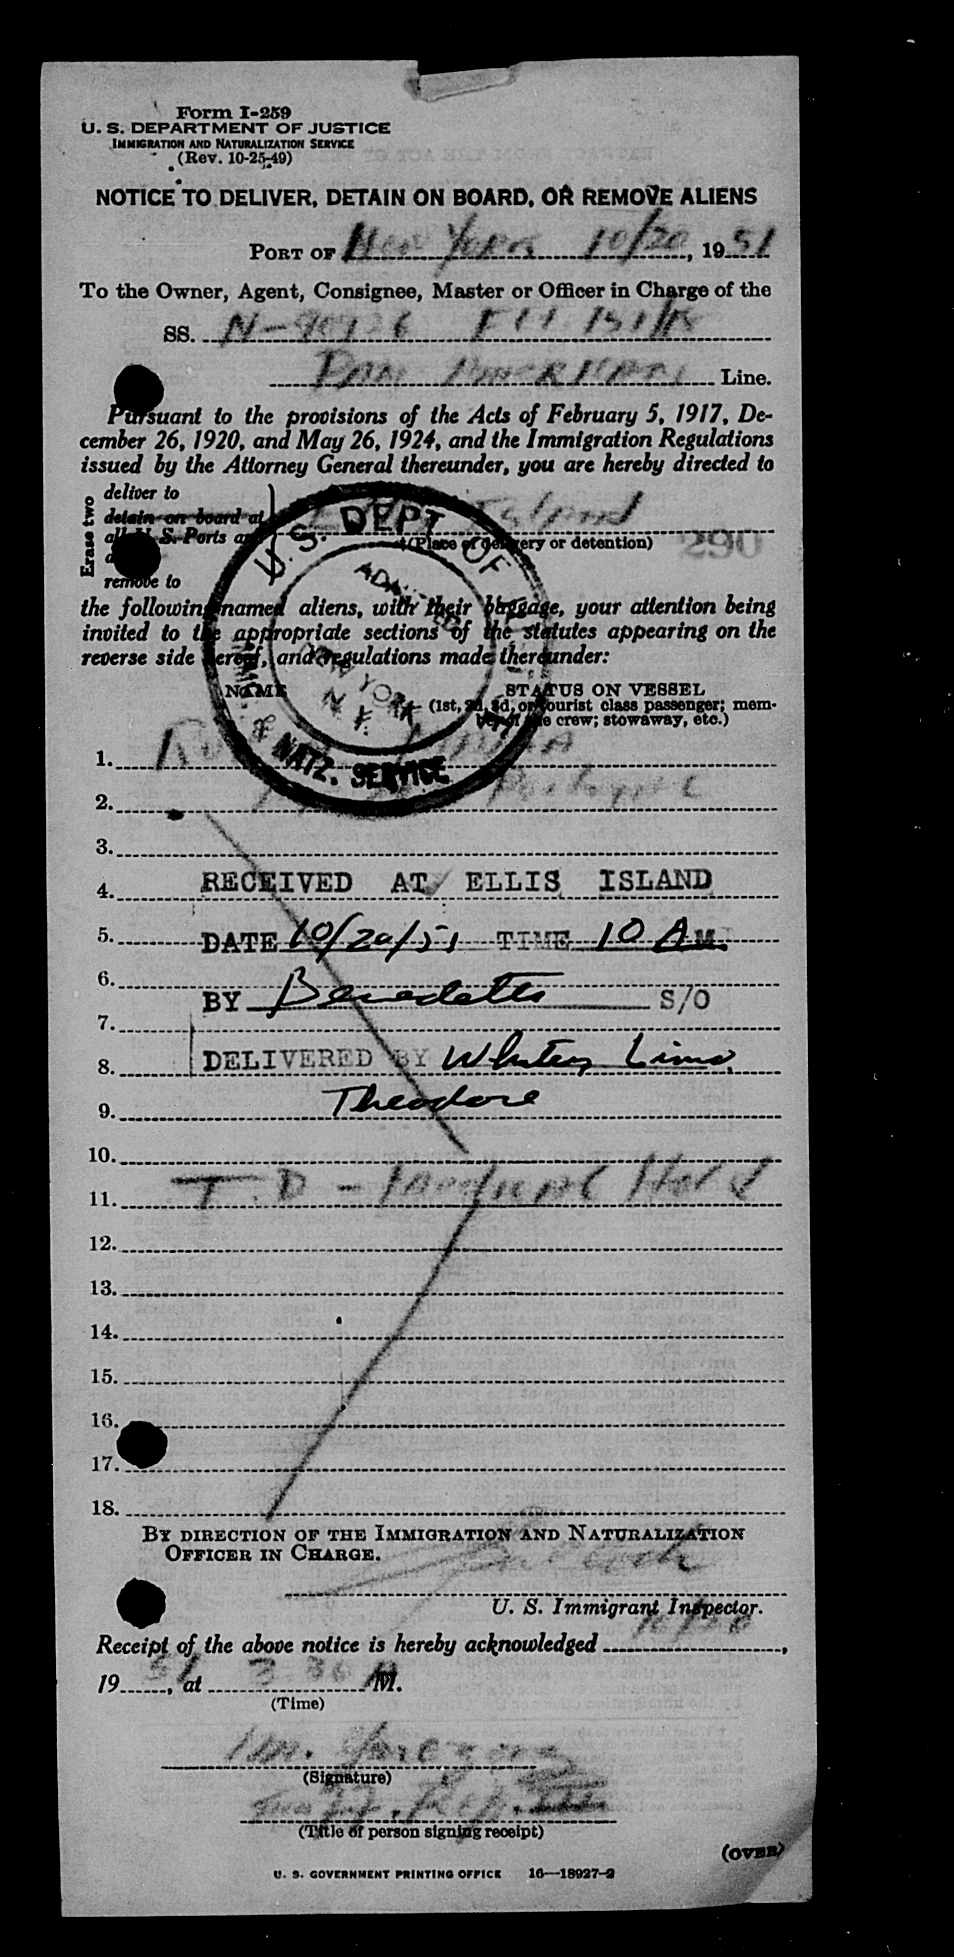 Form I-259
U. S. DEPARTMENT OF JUSTICE
IMMIGRATION AND NATURALIZATION SERVICE
(Rev. 10-25-49)
NOTICE TO DELIVER, DETAIN ON BOARD, OR REMOVE ALIENS
PORT OF New York 10/20, 1951
To the Owner, Agent, Consignee, Master or Officer in Charge of the
SS. N- Flt. 131/
Pan American Line.
Pursuant to the provisions of the Acts of February 5, 1917, De-
cember 26, 1920, and May 26, 1924, and the Immigration Regulations
issued by the Attorney General thereunder, you are hereby directed to
Erase two
deliver to
detain on board at
all U. S. Ports and
remove to
Island
(Place of delivery or detention)
290
the following named aliens, with their baggage, your attention being
invited to the appropriate sections of the statutes appearing on the
reverse side hereof, and regulations made thereunder:
U. S. DEPT. OF
ADMITTED
NEW YORK
N. Y.
& NATZ. SERVICE
NAME
STATUS ON VESSEL
(1st, 2d, 3d, or tourist class passenger; mem-
ber of the crew; stowaway, etc.)
1.
2.
3.
4. RECEIVED AT ELLIS ISLAND
5. DATE 10/20/51 TIME 10 A M.
6. BY Benedetto S/O
7.
8. DELIVERED BY Whiteys Limo.
9. Theodore
10.
11. T.D - Medical Hold
12.
13.
14.
15.
16.
17.
18.
BY DIRECTION OF THE IMMIGRATION AND NATURALIZATION
OFFICER IN CHARGE.
U. S. Immigrant Inspector.
Receipt of the above notice is hereby acknowledged 10/20,
1951, at 3 30 A M.
(Time)
(Signature)
(Title of person signing receipt)
(OVER)
U. S. GOVERNMENT PRINTING OFFICE 16—18927-2